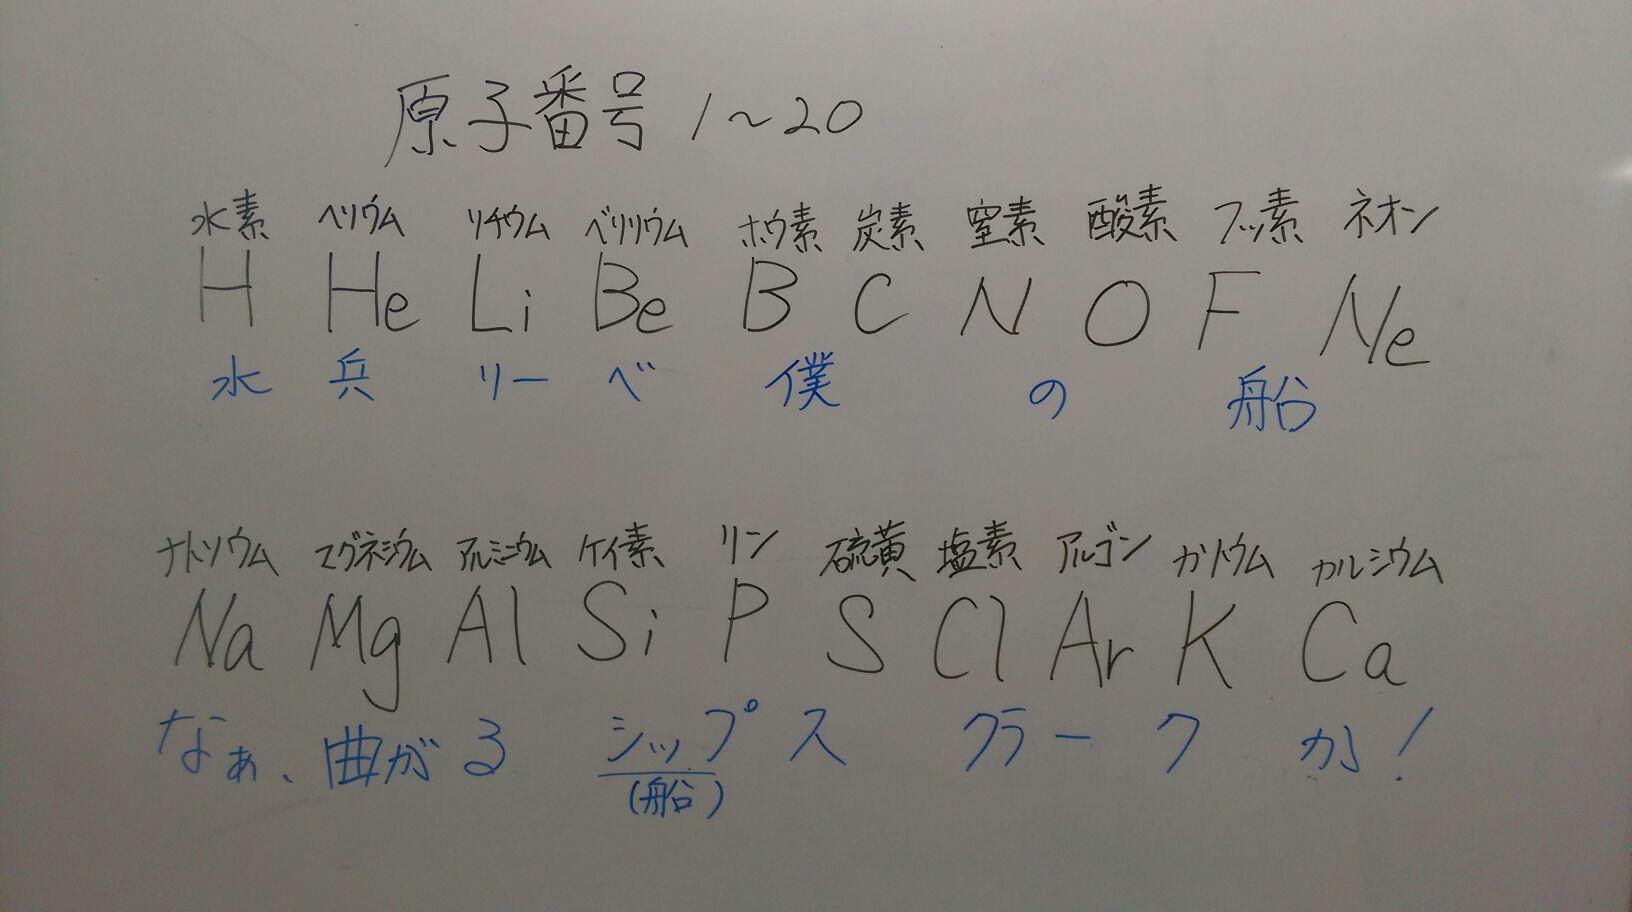 原子番号 1〜20
水素 ヘリウム リチウム ベリリウム ホウ素 炭素 窒素 酸素 フッ素 ネオン
H He Li Be B C N O F Ne
水 兵 リー ベ 僕 の 船
ナトリウム マグネシウム アルミニウム ケイ素 リン 硫黄 塩素 アルゴン カリウム カルシウム
Na Mg Al Si P S Cl Ar K Ca
なぁ、曲がる シップス クラーク か!
(船)